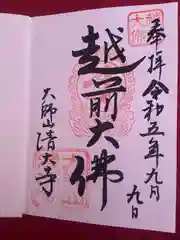 奉拝 令和五年九月九日
越前大佛
大師山清大寺